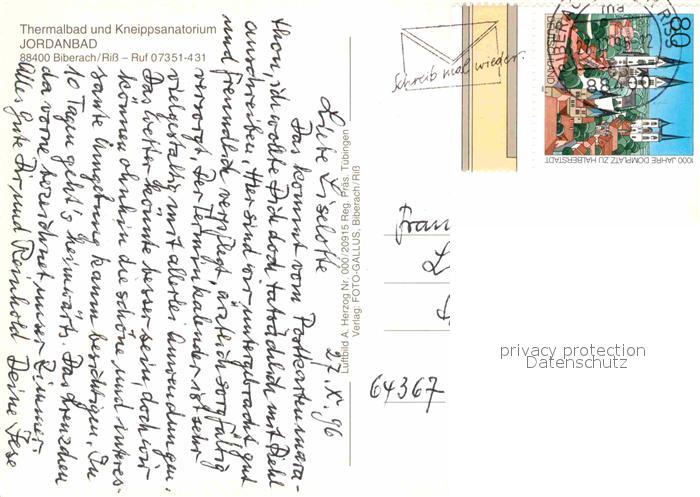 Thermalbad und Kneippsanatorium
JORDANBAD
88400 Biberach/Riß – Ruf 07351-431
27. X. 96
Liebe Liselotte
Das kommt vom Postkartenmara-
thon, ich wollte Dich doch tatsächlich mit
anschreiben. Hier sind wir untergebracht, gut
und freundlich verpflegt, ärztlich sorgfältig
versorgt. Der Terminkalender ist sehr
vielgestaltig mit allerlei Anwendungen.
Das Wetter könnte besser sein, doch wir
können ohnhin die schöne und interes-
sante Umgebung kaum besichtigen. In
10 Tagen geht's heimwärts. Das Kreuzchen
da vorne bezeichnet unser Zimmer
Alles Gute Dir und Reinhold Deine
Luftbild A. Herzog Nr. 000/20915 Reg. Präs. Tübingen
Verlag: FOTO-GALLUS, Biberach/Riß
Schreib mal wieder.
BIBERACH
RISS
88400
80
DEUTSCHLAND
1000 JAHRE DOMPLATZ ZU HALBERSTADT
Frau
L
64367
privacy protection
Datenschutz